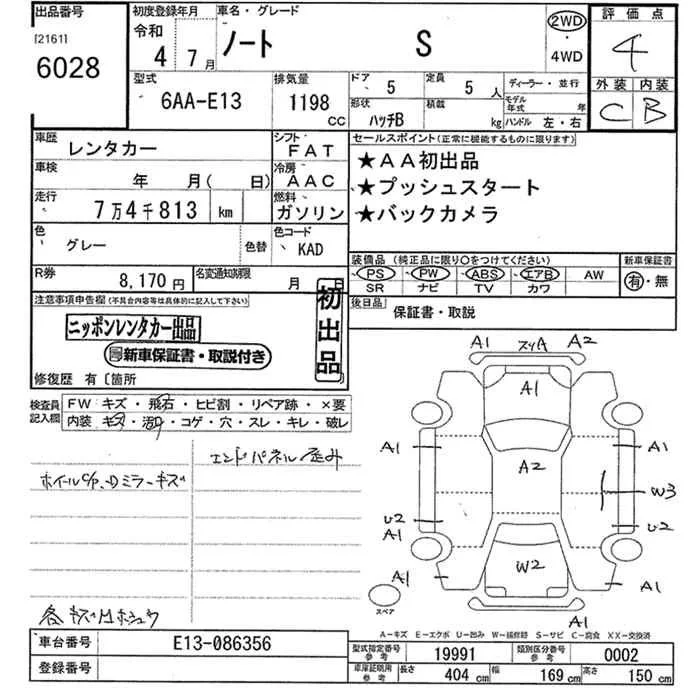 出品番号
[2161]
6028
初度登録年月
令和
4年 7月
車名・グレード
ノート S
2WD
・
4WD
評価点
4
外装 内装
C B
型式
6AA-E13
排気量
1198
CC
ドア 5
定員 5 人
ディーラー・並行
形状 ハッチB
積載 kg
モデル年式 年
ハンドル 左・右
車歴 レンタカー
シフト FAT
車検 年 月( 日)
冷房 AAC
走行 7万4千813 km
燃料 ガソリン
色 グレー
色替
色コード KAD
R券 8,170円
名変通知期限 月 日
セールスポイント(正常に機能するものに限ります)
★AA初出品
★プッシュスタート
★バックカメラ
装備品(純正品に限り○をつけてください)
新車保証書
PS PW ABS エアB AW
SR ナビ TV カワ
有・無
後日品 保証書・取説
注意事項申告欄(不具合内容等は具体的に記入して下さい)
初出品
ニッポンレンタカー出品
新車保証書・取説付き
修復歴 有〔箇所
検査員記入欄
FW キズ・飛石・ヒビ割・リペア跡・×要
内装 キズ・汚れ・コゲ・穴・スレ・キレ・破レ
エンドパネル歪み
ホイールC/P、Dミラーキズ
A1 スリA A2
A1
A1 A2 A1
W3
U2 U2
A1
W2
A1 A1
スペア
A1
A-キズ E-エクボ U-凹み W-補修跡 S-サビ C-腐食 XX-交換済
車台番号 E13-086356
登録番号
型式指定番号 参考 19991
類別区分番号 参考 0002
車庫証明用 参考 長さ 404 cm 幅 169 cm 高さ 150 cm